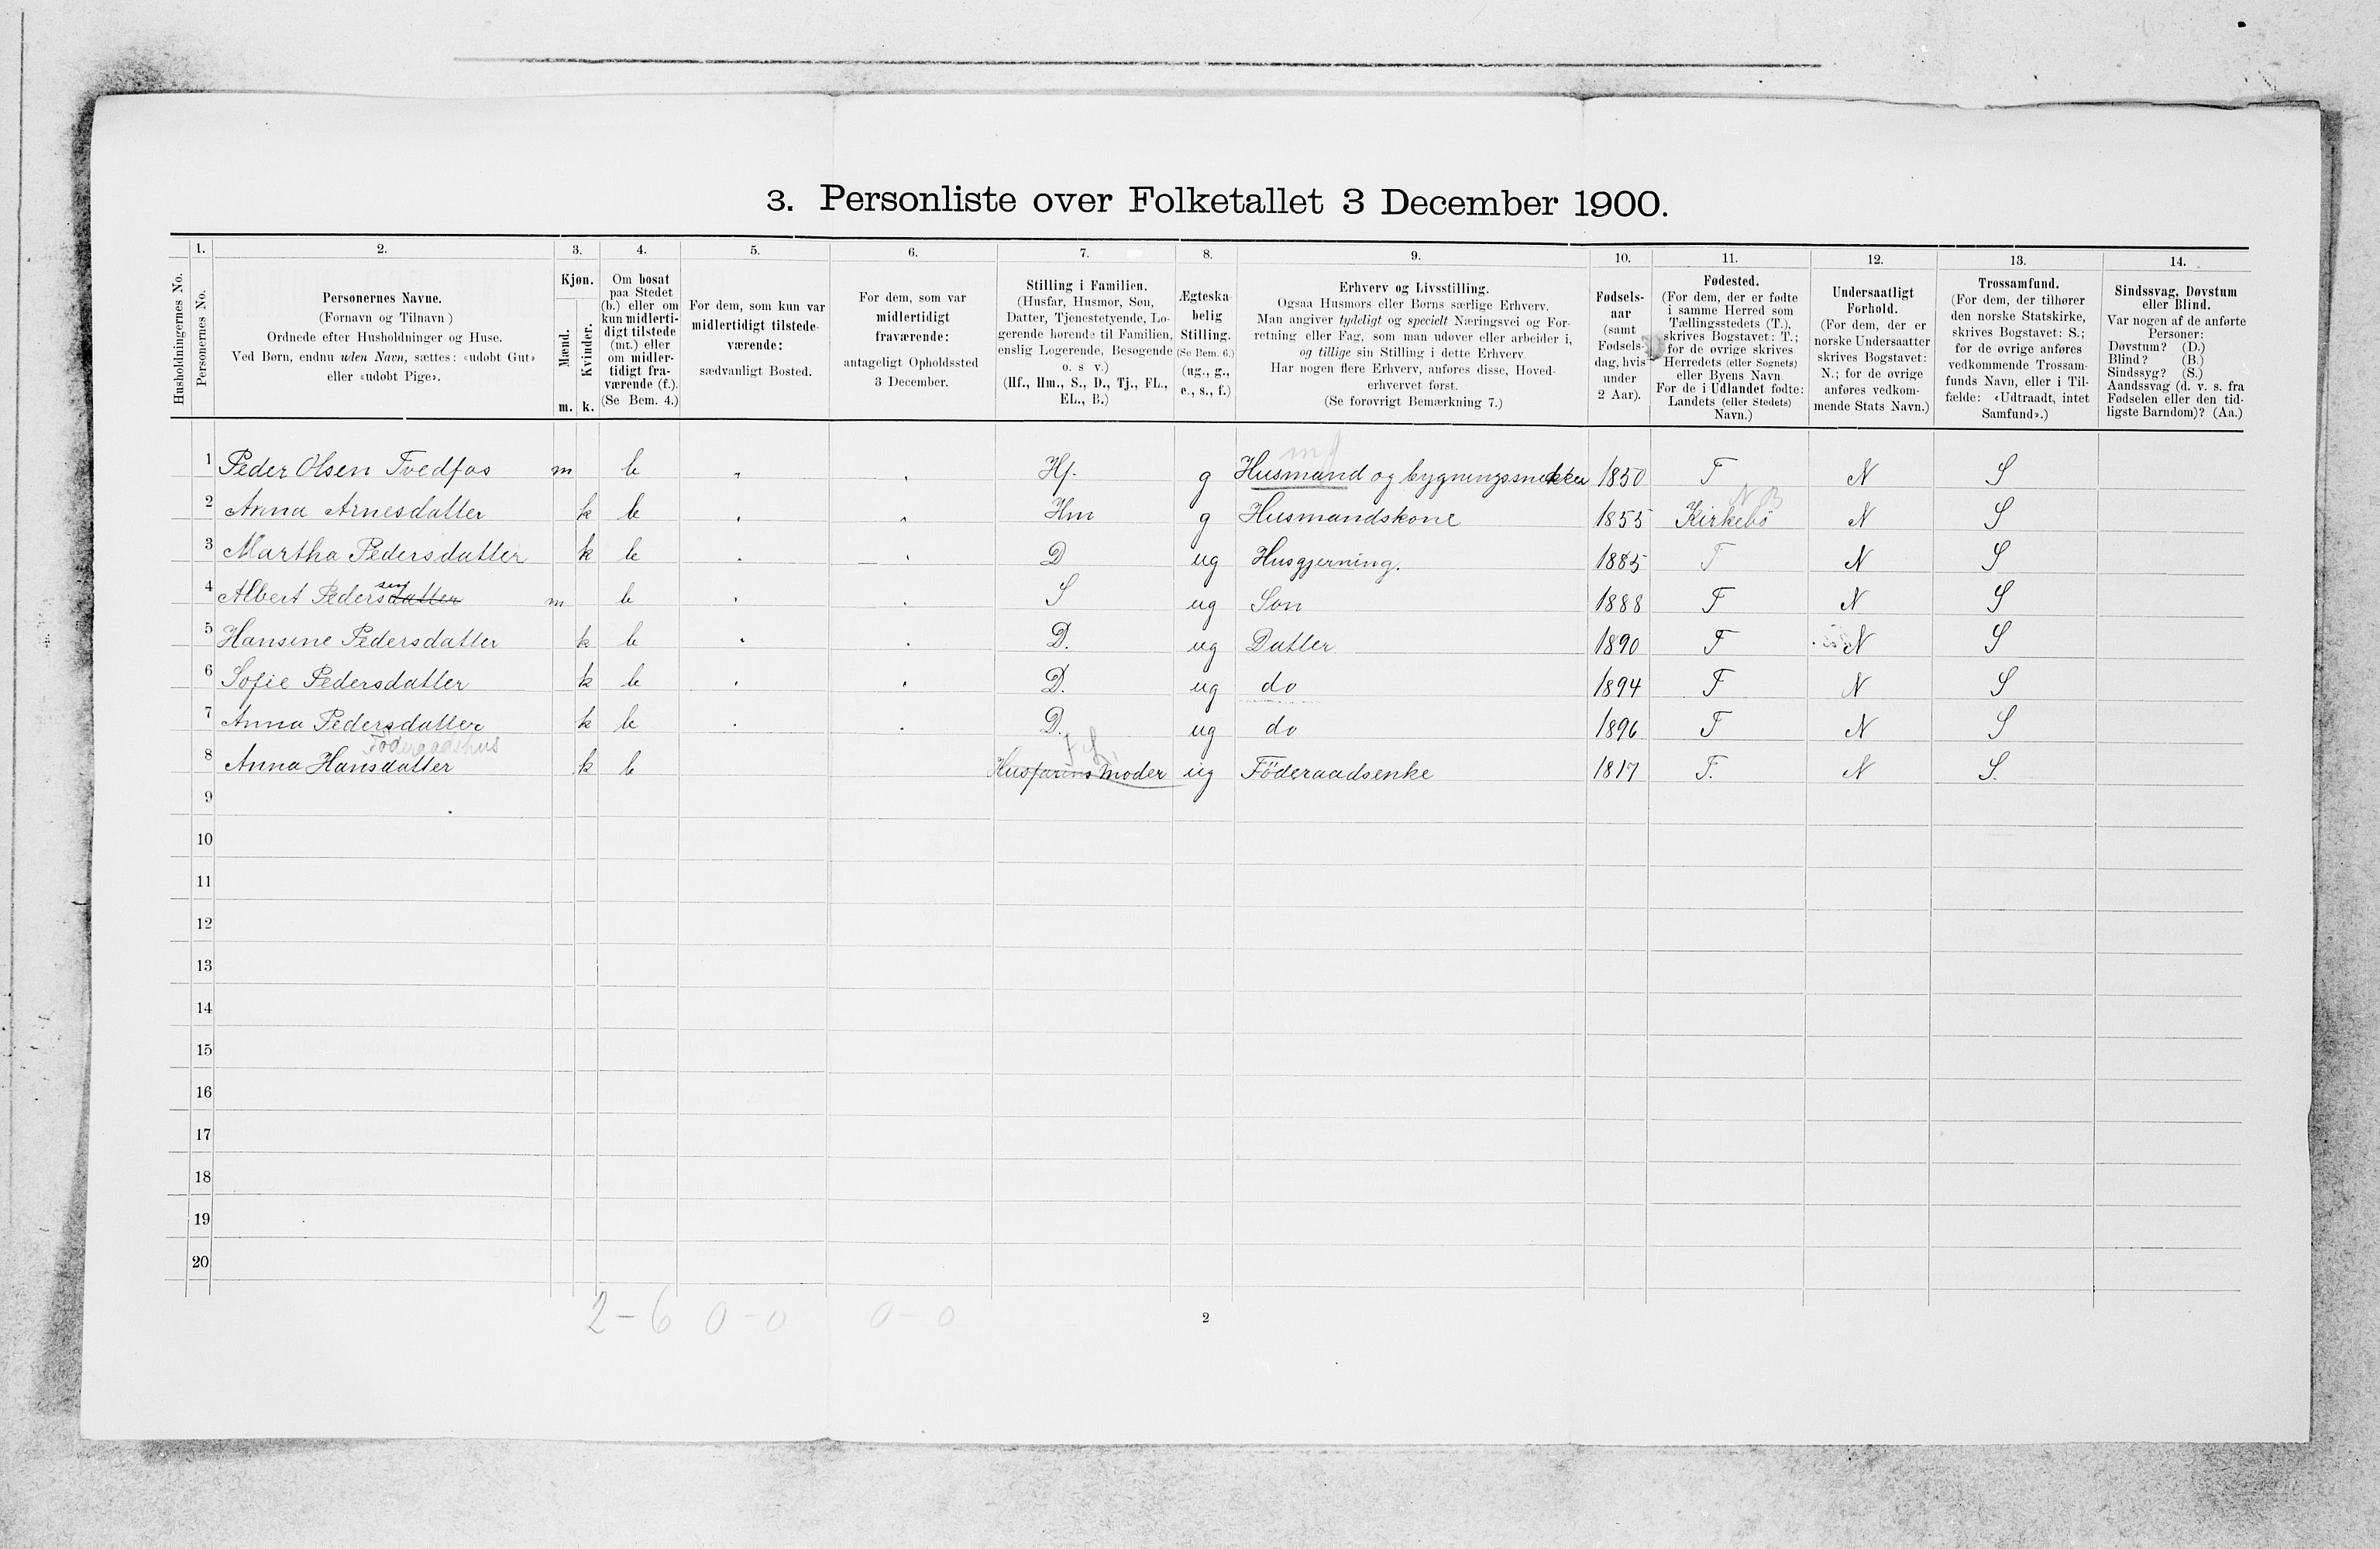 3. Personliste over Folketallet 3 December 1900.
1. 2. 3. 4. 5. 6. 7. 8. 9. 10. 11. 12. 13. 14.
Husholdningernes No.
Personernes No.
Personernes Navne.
(Fornavn og Tilnavn )
Ordnede efter Husholdninger og Huse.
Ved Børn, endnu uden Navn, sættes: «udøbt Gut»
eller «udøbt Pige».
Kjøn.
Mænd.
Kvinder.
m. k.
Om bosat
paa Stedet
(b.) eller om
kun midlerti-
digt tilstede
(mt.) eller
om midler-
tidigt fra-
værende (f.).
(Se Bem. 4.)
For dem, som kun var
midlertidigt tilstede-
værende:
sædvanligt Bosted.
For dem, som var
midlertidigt
fraværende:
antageligt Opholdssted
3 December.
Stilling i Familien.
(Husfar, Husmor, Søn,
Datter, Tjenestetyende, Lo-
gerende hørende til Familien,
enslig Logerende, Besøgende
o. s v.)
(Hf., Hm., S., D., Tj., FL.,
EL., B.)
Ægteska-
belig
Stilling.
(Se Bem. 6.)
(ug., g.,
e., s., f.)
Erhverv og Livsstilling.
Ogsaa Husmors eller Børns særlige Erhverv.
Man angiver tydeligt og specielt Næringsvei og For-
retning eller Fag, som man udøver eller arbeider i,
og tillige sin Stilling i dette Erhverv.
Har nogen flere Erhverv, anføres disse, Hoved-
erhvervet først.
(Se forøvrigt Bemærkning 7.)
Fødsels-
aar
(samt
Fødsels-
dag, hvis
under
2 Aar).
Fødested.
(For dem, der er fødte
i samme Herred som
Tællingsstedets (T.),
skrives Bogstavet: T.;
for de øvrige skrives
Herredets (eller Sognets)
eller Byens Navn.
For de i Udlandet fødte:
Landets (eller Stedets)
Navn.)
Undersaatligt
Forhold.
(For dem, der er
norske Undersaatter
skrives Bogstavet:
N.; for de øvrige
anføres vedkom-
mende Stats Navn.)
Trossamfund.
(For dem, der tilhører
den norske Statskirke,
skrives Bogstavet: S.;
for de øvrige anføres
vedkommende Trossam-
funds Navn, eller i Til-
fælde: «Udtraadt, intet
Samfund».)
Sindssvag, Døvstum
eller Blind.
Var nogen af de anførte
Personer:
Døvstum? (D.)
Blind? (B.)
Sindssyg? (S.)
Aandssvag (d. v. s. fra
Fødselen eller den tid-
ligste Barndom)? (Aa.)
1 Peder Olsen Tvedfos m b Hf. g Husmand og bygningssnekker 1850 T N S
N B
2 Anna Arnesdatter k b Hm g Husmandskone 1855 Kirkebö N S
3 Martha Pedersdatter k b D ug Husgjerning. 1885 T N S
sen
4 Albert Pedersdatter m b S ug Son 1888 T N S
5 Hansine Pedersdatter k b D. ug Datter 1890 T N S
6 Sofie Pedersdatter k b D. ug do 1894 T N S
7 Anna Pedersdatter k b D. ug do 1896 T N S
Föderaadshus
8 Anna Hansdatter k b Husfarens Moder ug Föderaadsenke 1817 T. N S.
9
10
11
12
13
14
15
16
17
18
19
20
2-6 0-0 0-0
2